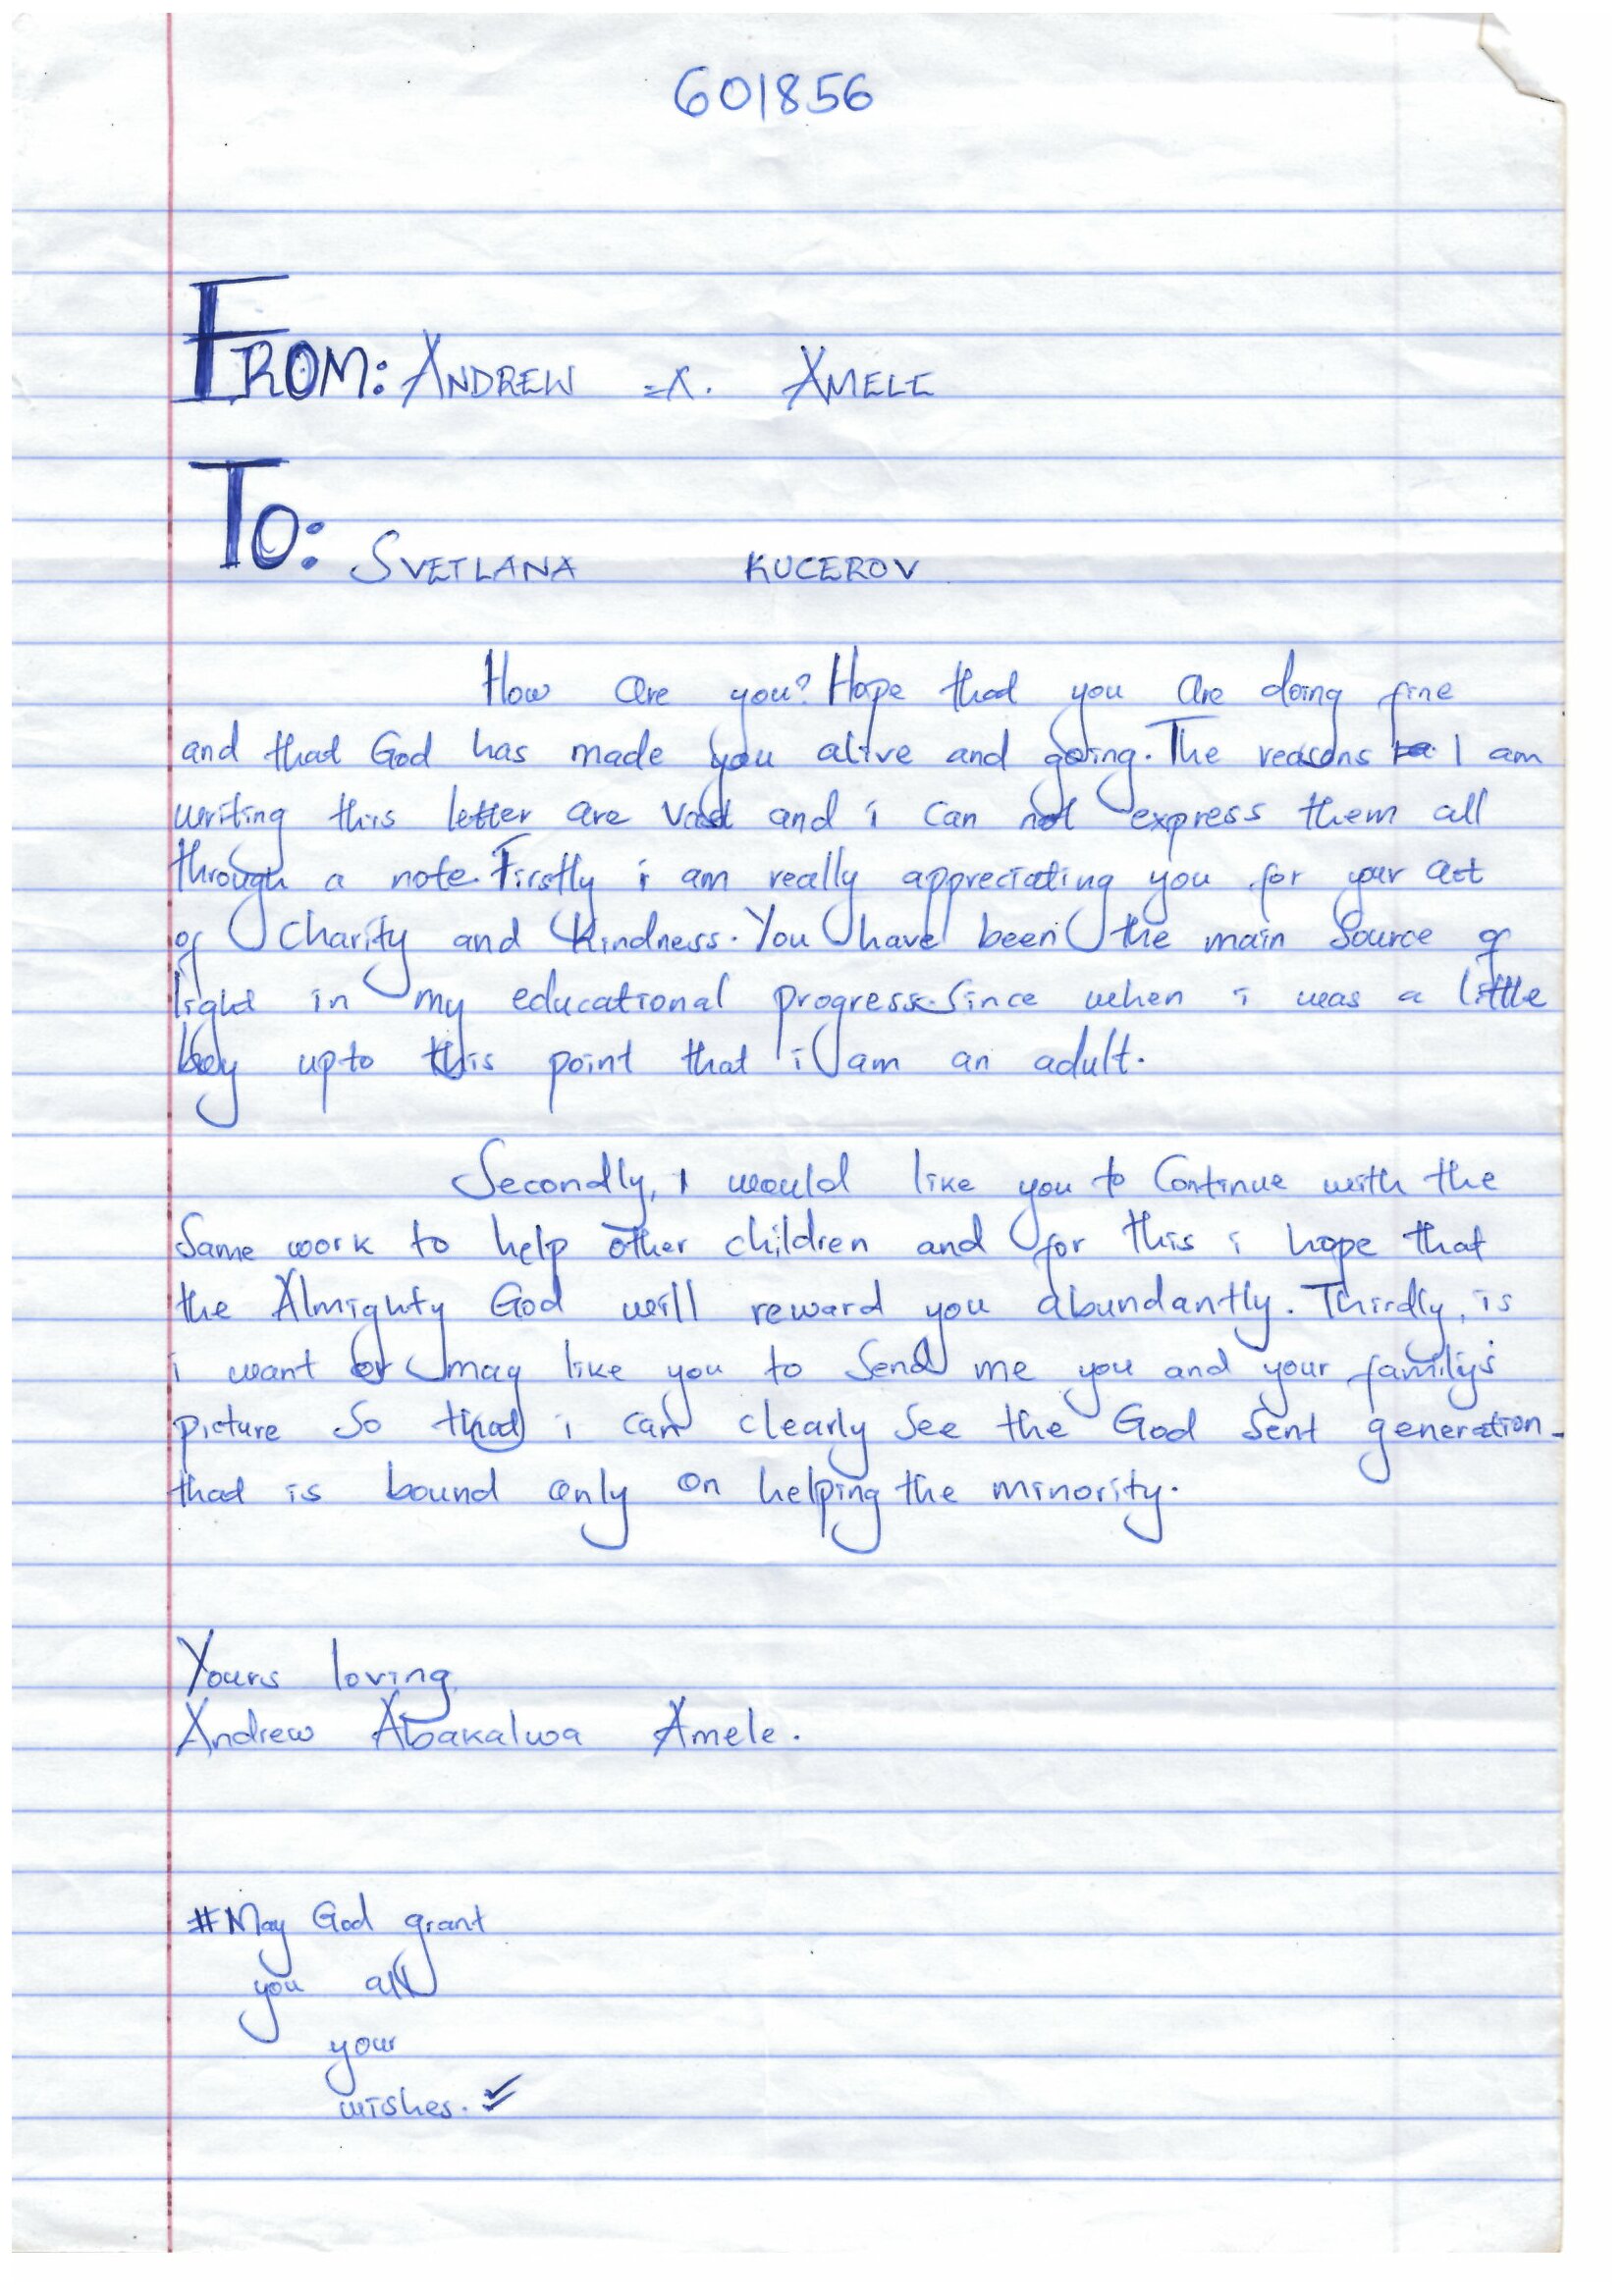 601856
FROM: ANDREW A. AMELE
TO: SVETLANA KUCEROV
How are you? Hope that you are doing fine
and that God has made you alive and going. The reasons I am
writing this letter are vast and i can not express them all
through a note. Firstly i am really appreciating you for your act
of charity and kindness. You have been the main source of
light in my educational progress. Since when i was a little
boy upto this point that i am an adult.
Secondly, I would like you to continue with the
same work to help other children and for this i hope that
the Almighty God will reward you abundantly. Thirdly, is
i want or may like you to send me you and your family's
picture so that i can clearly see the God sent generation
that is bound only on helping the minority.
Yours loving,
Andrew Abakalwa Amele.
#May God grant
you all
your
wishes.